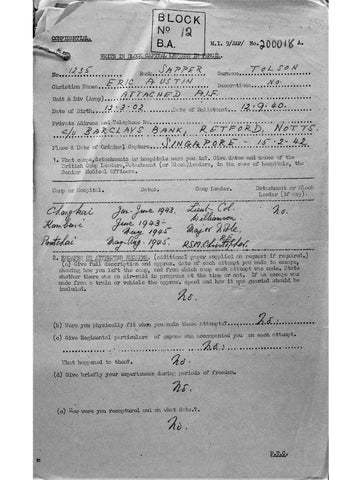 BLOCK
No 12
B.A.
CONFIDENTIAL.
M.I. 9/JAP/ No. 200016
WRITE IN BLOCK CAPITAL LETTERS IN PENCIL.
No. 1235 Rank. SAPPER Surname. TOLSON
Christian Name. ERIC AUSTIN Decorations. No.
Unit & Div (Army). ATTACHED
Date of Birth. 13.3.02 Date of Enlistment. 12.9.40.
Private Address and Telephone No.
C/o BARCLAYS BANK, RETFORD, NOTTS.
Place & Date of Original Capture. SINGAPORE - 15.2.42.
1. What camps, detachments or hospitals were you in? Give dates and names of the
British Camp Leaders, Detachment (or Block) Leaders, in the case of hospitals, the
Senior Medical Officers.
Camp or Hospital. Dates. Camp Leader. Detachment or Block
Leader (if any).
Changkai Jan-June 1943. Lieut-Col. Williamson. No.
Kanburi June 1943- May 1945 Major
May-Aug 1945. RSM
2. ESCAPES OR ATTEMPTED ESCAPES. (Additional paper supplied on request if required.)
(a) Give full description and approx. date of each attempt you made to escape,
showing how you left the camp, and from which camp each attempt was made. State
whether there was an air-raid in progress at the time or not. If an escape was
made from a train or vehicle the approx. speed and how it was guarded should be
included.
No.
(b) Were you physically fit when you made these attempts? No.
(c) Give Regimental particulars of anyone who accompanied you on each attempt.
No.
What happened to them? No.
(d) Give briefly your experiences during periods of freedom.
No.
(e) How were you recaptured and on what date?
No.
P.T.O.